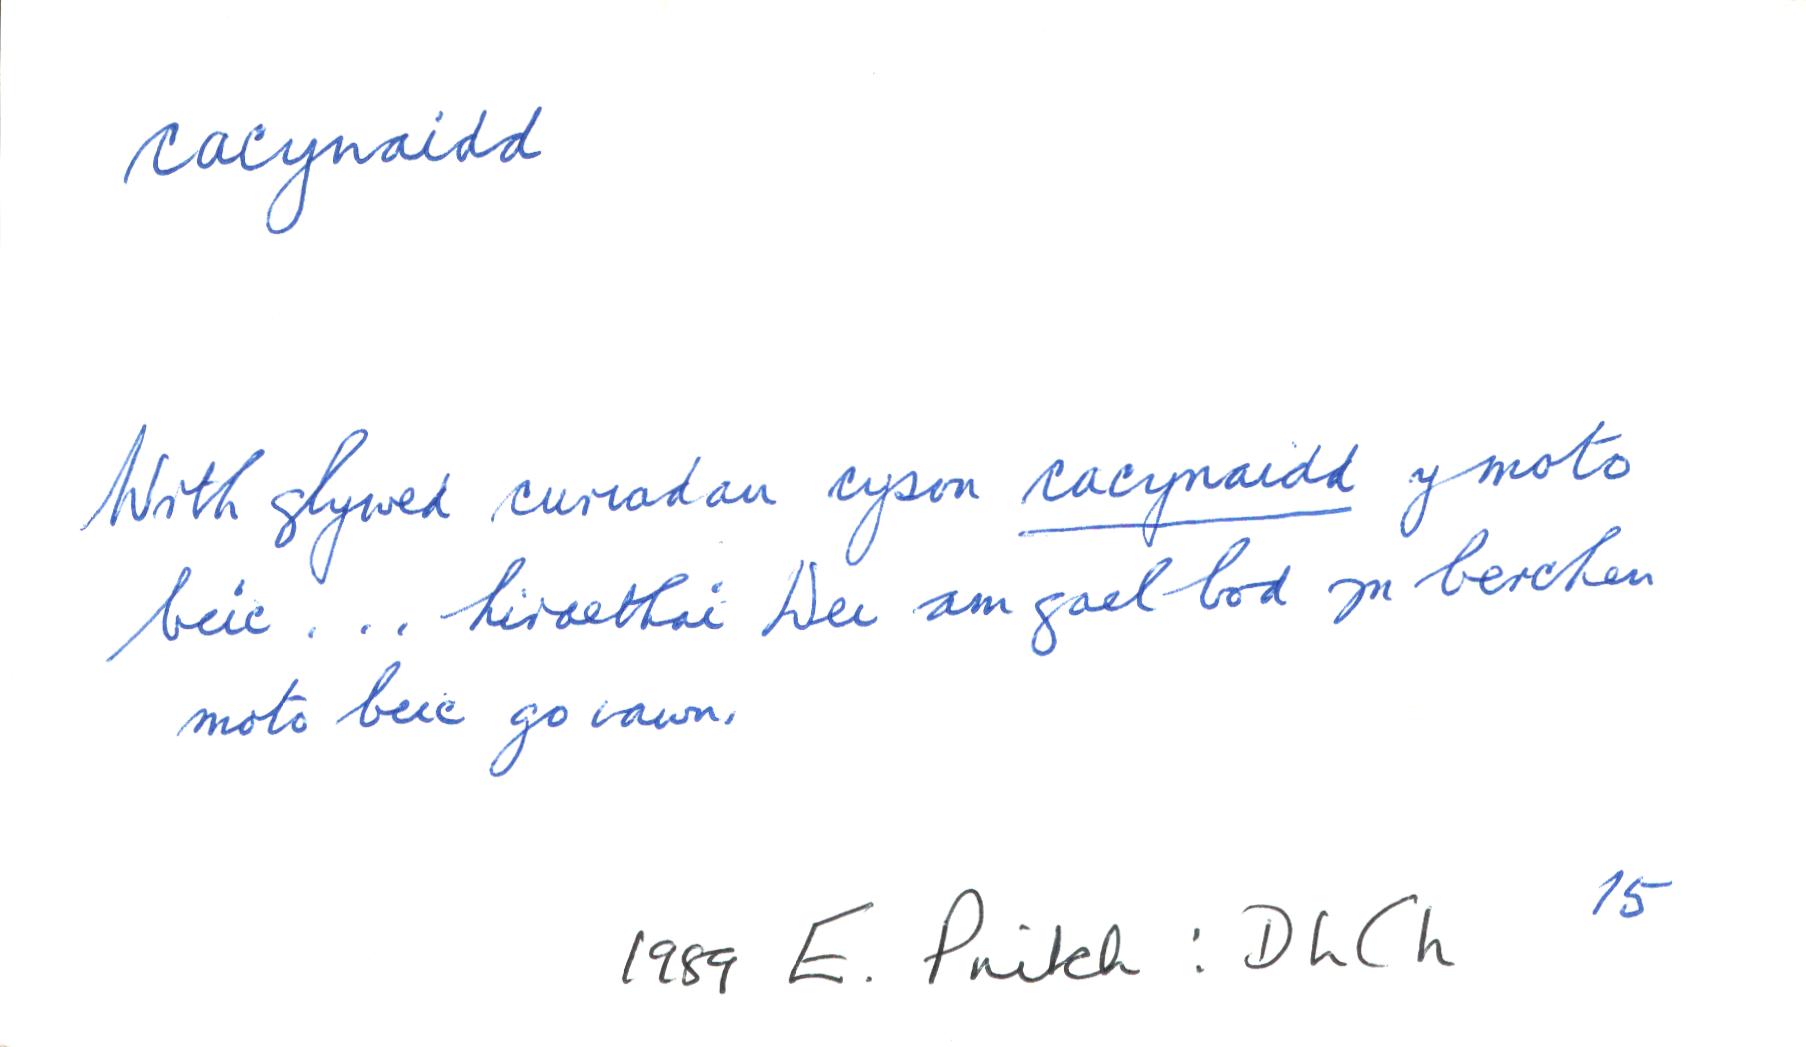 cacynaidd
Wrth glywed curiadau cyson cacynaidd y moto
beic . . . hiraethai Dei am gael bod yn berchen
moto beic go iawn.
15
1989 E. Pritch : DLCh